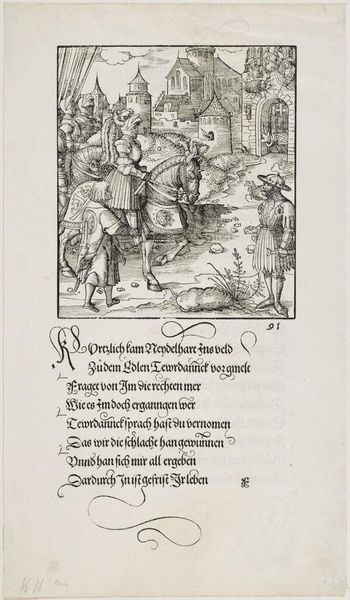 91
Kurtzlich kam Neydelhart Ins veld
Zů dem Edlen Tewrdannck vor gmelt
Fraget von Im die rechten mer
Wie es Im doch erganngen wer
Tewrdannck sprach hast du vernomen
Das wir die schlacht han gewunnen
Vnnd han sich mir all ergeben
Dardurch In ist gefrist Ir leben